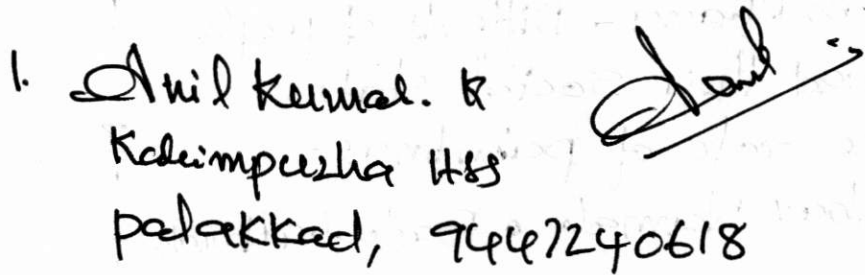 1. Anil Kumar. K
Kadrimpuzha HSS
palakkad, 9447240618